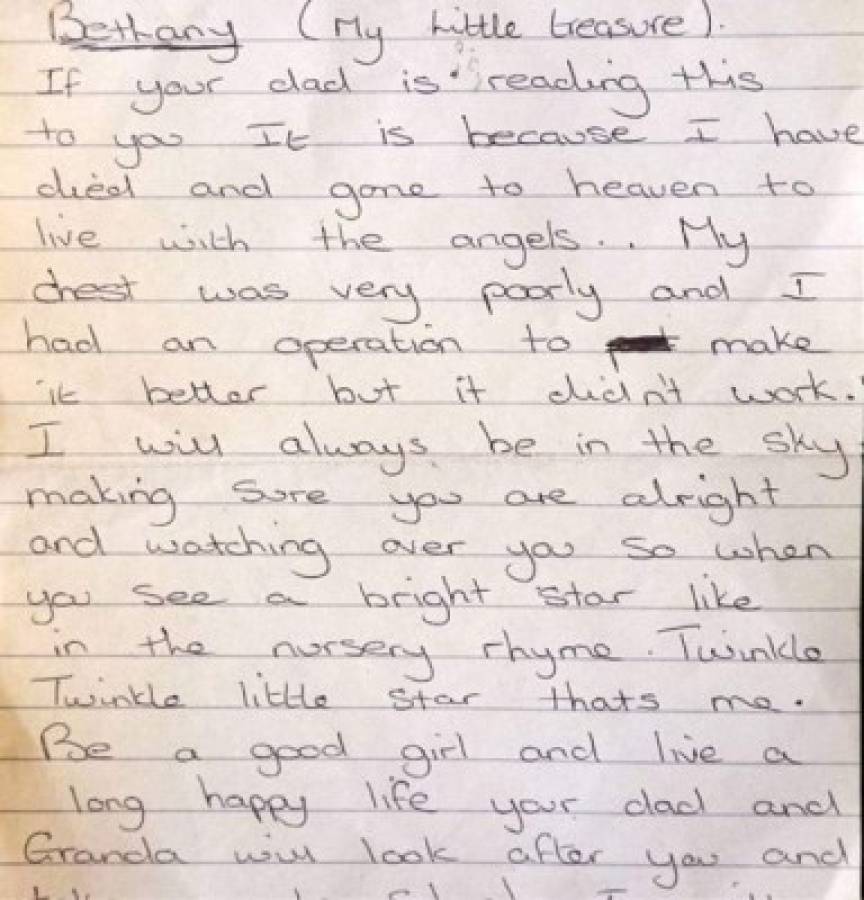 Bethany (My Little treasure).
If your dad is reading this
to you It is because I have
died and gone to heaven to
live with the angels... My
chest was very poorly and I
had an operation to make
it better but it didn't work.
I will always be in the sky
making sure you are alright
and watching over you so when
you see a bright star like
in the nursery rhyme. Twinkle
Twinkle little star thats me.
Be a good girl and live a
long happy life your dad and
Granda will look after you and